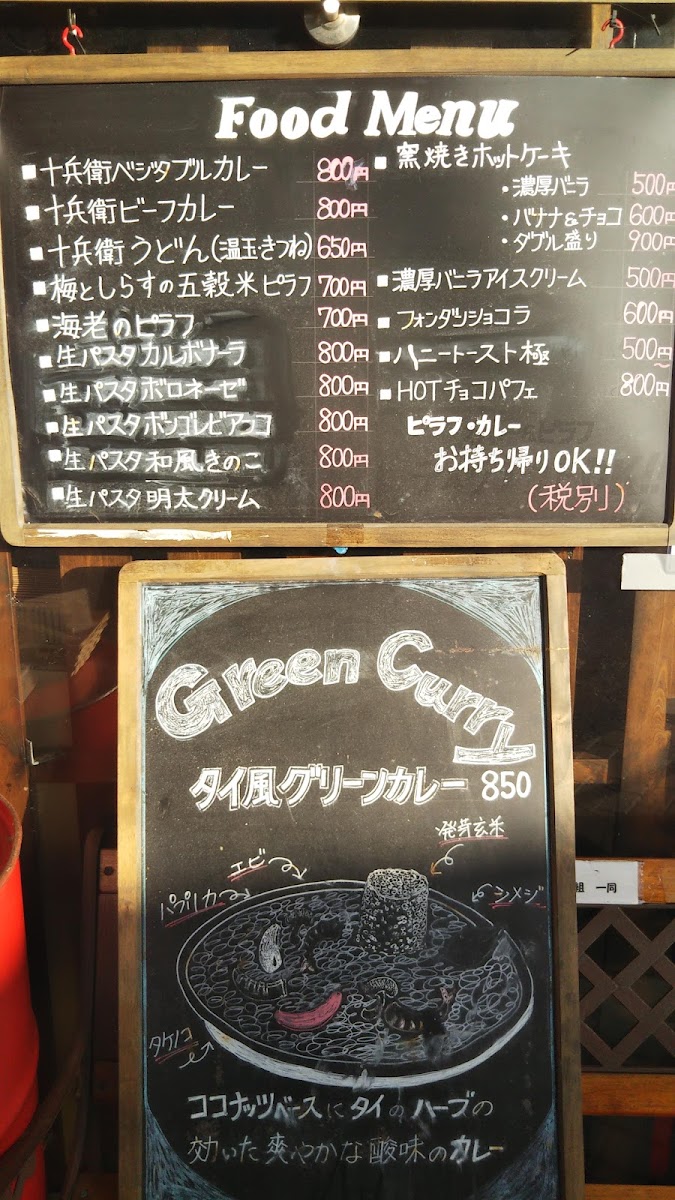 Food Menu
■十兵衛ベジタブルカレー 800円
■十兵衛ビーフカレー 800円
■十兵衛うどん(温玉きつね) 650円
■梅としらすの五穀米ピラフ 700円
■海老のピラフ 700円
■生パスタカルボナーラ 800円
■生パスタボロネーゼ 800円
■生パスタボンゴレビアンコ 800円
■生パスタ和風きのこ 800円
■生パスタ明太クリーム 800円
■窯焼きホットケーキ
・濃厚バニラ 500円
・バナナ&チョコ 600円
・ダブル盛り 900円
■濃厚バニラアイスクリーム 500円
■フォンダンショコラ 600円
■ハニートースト極 500円~
■HOTチョコパフェ 800円
ピラフ・カレー
お持ち帰りOK!!
(税別)
Green Curry
タイ風グリーンカレー 850
発芽玄米
エビ
パプリカ
シメジ
タケノコ
ココナッツベースにタイのハーブの
効いた爽やかな酸味のカレー
組 一同